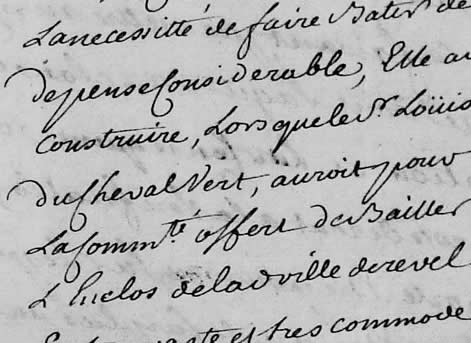 La necessitté de faire Batir de
depense Considerable, Elle a
Construire, Lorsque le Sr. Loüis
Du Cheval Vert, auroit pour
La Comm.te offert de Bailler
L'Enclos de lad. ville de revel
et tres commode